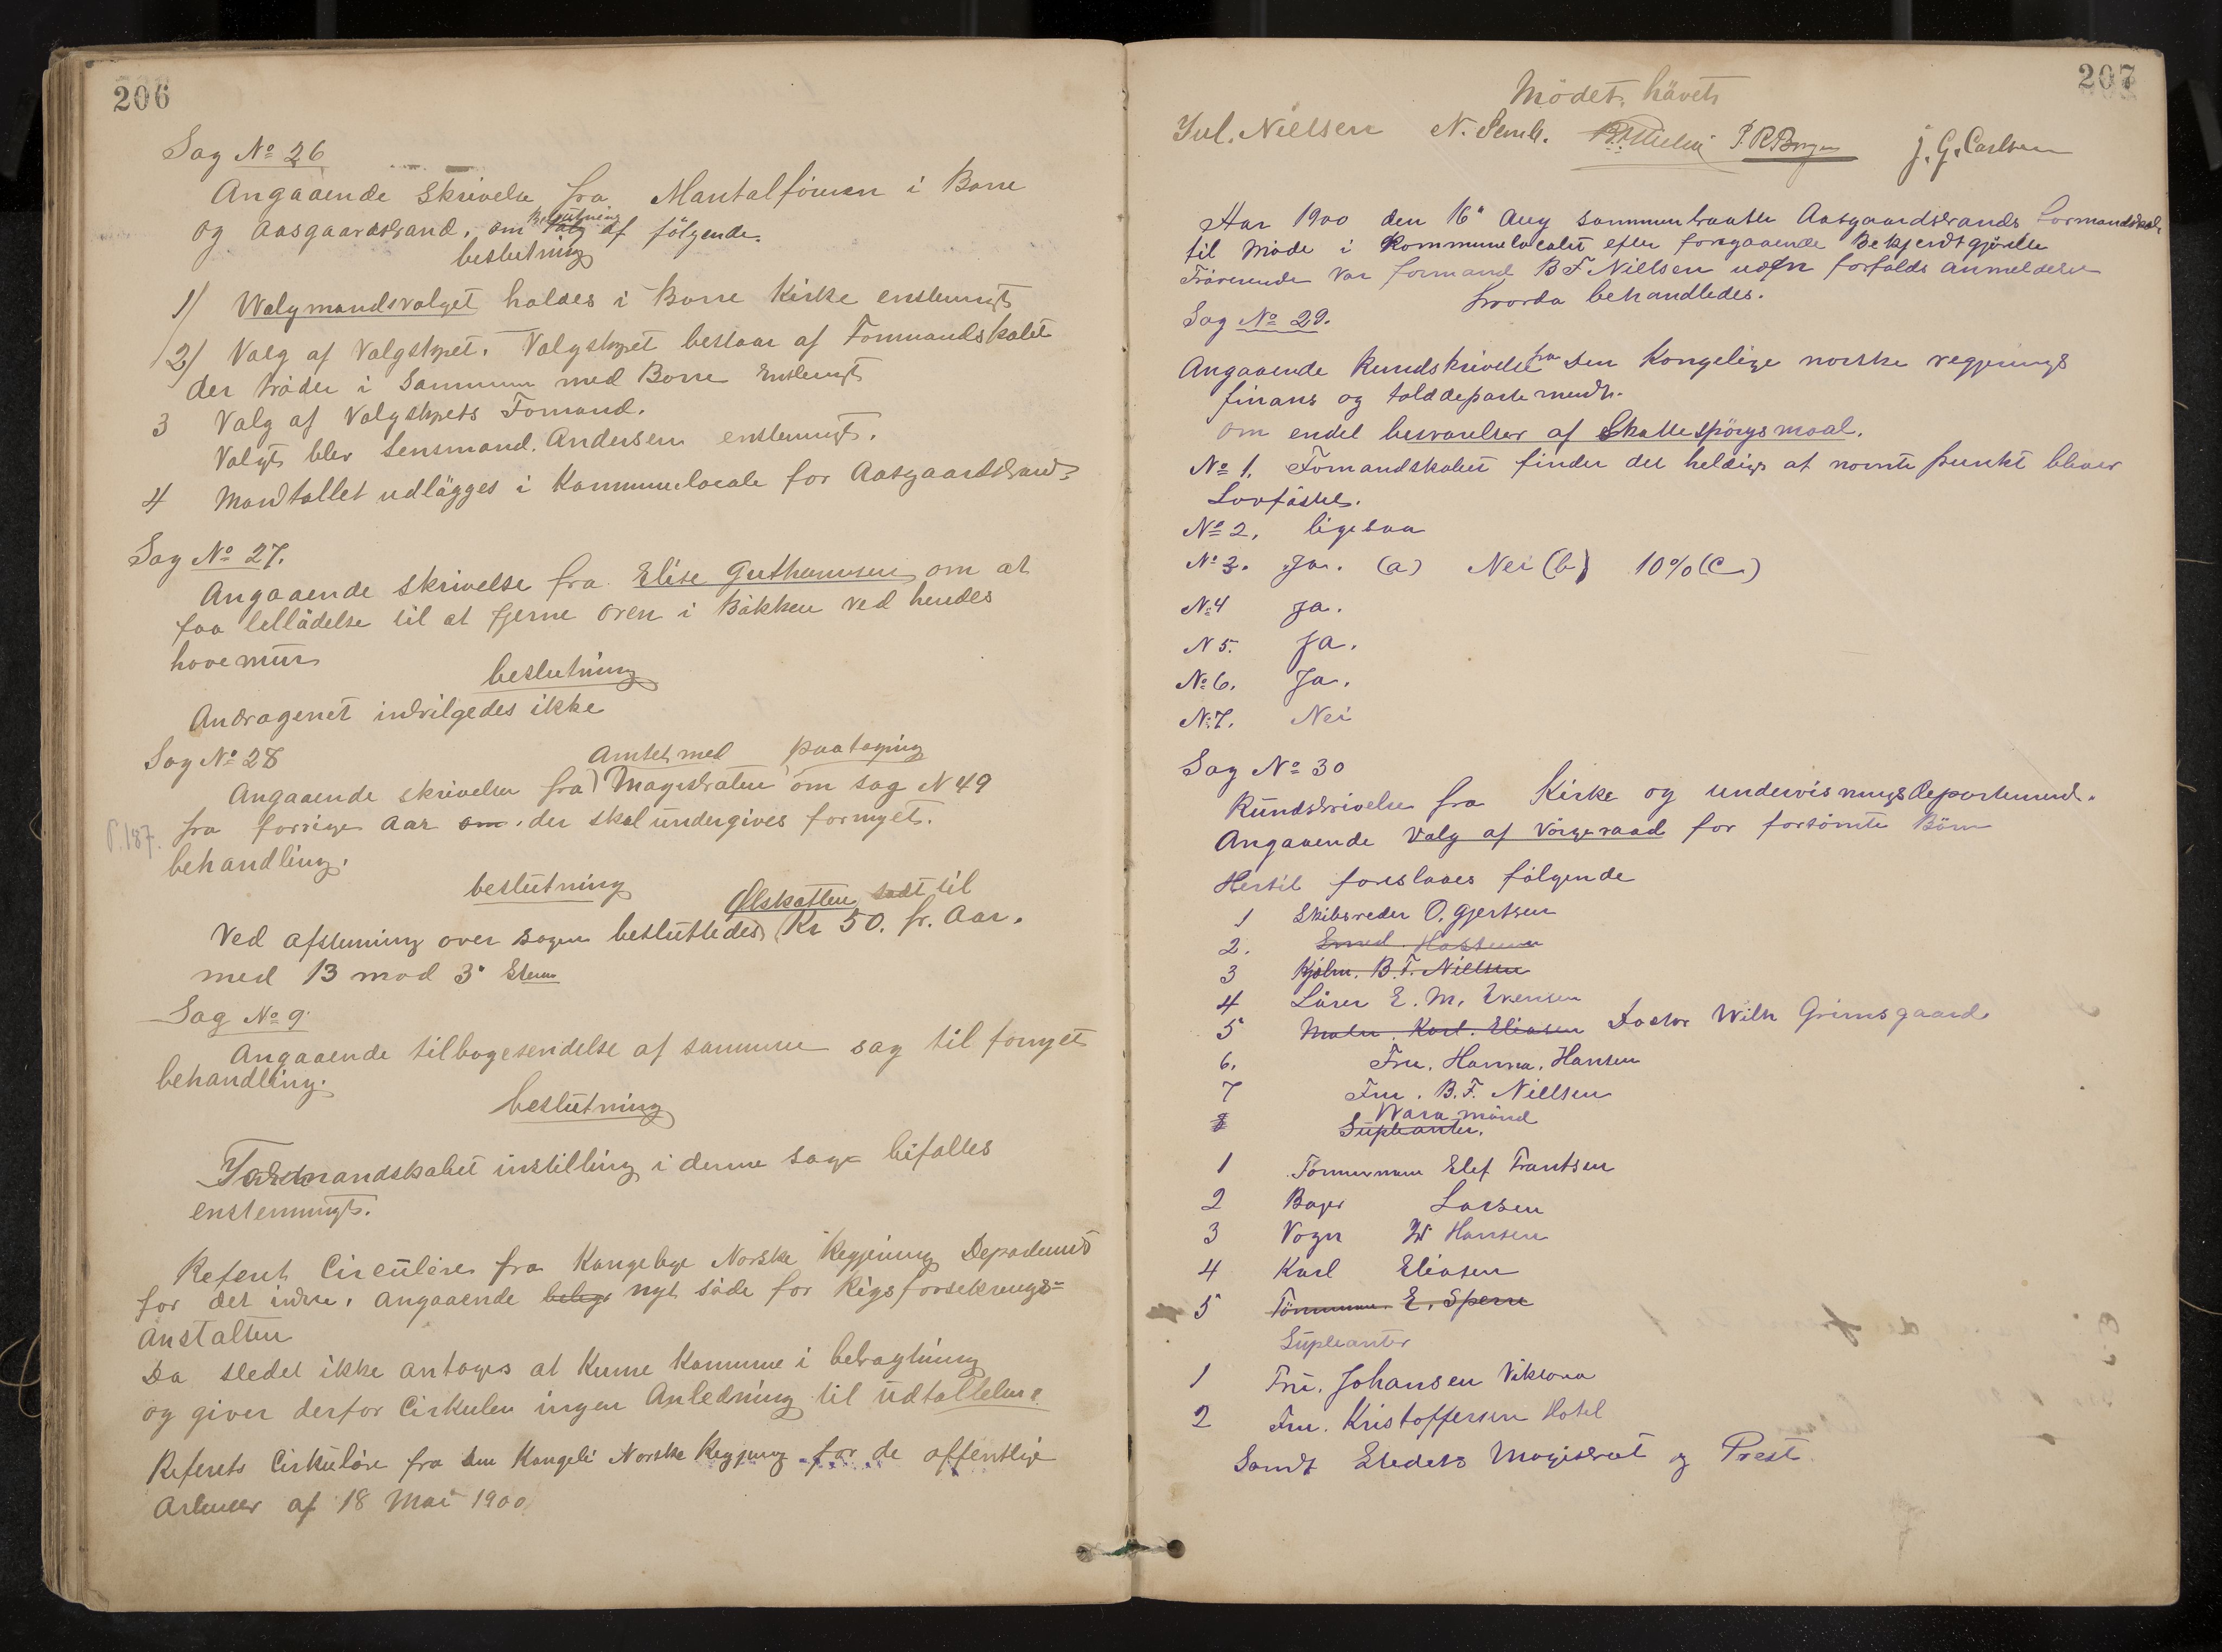 206
Sag No 26
Angaaende skrivelse fra Mantalförren i Borre
og Aasgaardstrand. om Valg Beslutning af fölgende.
beslutning
1) Valgmandsvalget holdes i Borre Kirke enstemigt
2) Valg af Valgstyret. Valgstyret bestaar af Formandskabet
der träder i Sammen med Borre Enstemigt
3 Valg af Valgstyrets Formand.
Valgt blev Lensmand. Andersen enstemigt.
4 Mandtallet udlägges i Kommunelocale for Aasgaardstrand
Sag No 27.
Angaaende skrivelse fra Elise Guthormsen om at
faa telladelse til at fjerne oren i Bäkken ved hendes
havemur
beslutning
Andragenet indvilgedes ikke
Sag No 28
Amtet med paategning
Angaaende skrivelse fra Magistraten om sag N 49
P. 187. fra forrige Aar om. der skal undergives fornyet.
behandling.
beslutning
Ølskatten sadt til
Ved afstemning over sagen besluttedes Kr 50. pr. Aar.
med 13 mod 3 Stem
Sag No 9.
Angaaende tilbagesendelse af samme sag til fornyet
behandling.
beslutning
Formandskabet instilling i denne sag bifaltes
enstemmigt.
Referet Circuläre fra Kongelige Norske Regjering Departement
for det indre. angaaende nyt säde for Rigsforsekrings=
anstalten
Da stedet ikke antages at kune komme i betragtning
og giver derfor Cirkulen ingen Anledning til Udtallelse.
Referets Cirkuläre fra den Kongeli Norske Regjering for de offentlige
Arbeider af 18 Mai 1900
207
Mödet, hävet
Jul. Nielsen N. Semb. J. G. Carlsen
Aar 1900 den 16 Aug sammentraatte Aasgaardstrands Formandskab
til Möde i Kommunelocalet efter forgaaende Bekjendtgjörelse
Frävernde var formand B F Nielsen uden forfalds anmeldelse
hvorda behandledes.
Sag No 29.
Angaaende Rundskrivelse fra Den Kongelige norske regjerings
finans og tolddepartement.
om endel besvarelser af Skattespörgsmaal.
No 1. Formandskabet finder det heldigt at nevnte punkt bliver
Lovfästet.
No 2. ligesaa
No 3. Ja. (a) Nei (b) 10% (c)
No 4 Ja.
N 5. Ja.
No 6. Ja.
No 7. Nei
Sag No 30
Rundskrivelse fra Kirke og undervisningsdepartement.
Angaaende Valg af Vörgeraad for forsömte Börn
Hertil foreslaaes fölgende
1 Skibsreder O. Gjertsen
2. Smed. Hassum
3 Kjöbm. B. F. Nielsen
4 Lärer E. M. Evensen
5 Maler. Karl. Eliasen Doctor Wilh Grimsgaard
6. Fru. Hanna. Hansen
7 Fru. B. F. Nielsen
Vara mänd
Supleanter.
1 Tömmerman Elef Frantsen
2 Bager Larsen
3 Vogn W Hansen
4 Karl Eliasen
5 Tömmerm. E. Sperre
Supleanter
1 Fru. Johansen Viktoria
2 Fru. Kristoffersen Hotel
Samt Stedets Magistrat og Prest